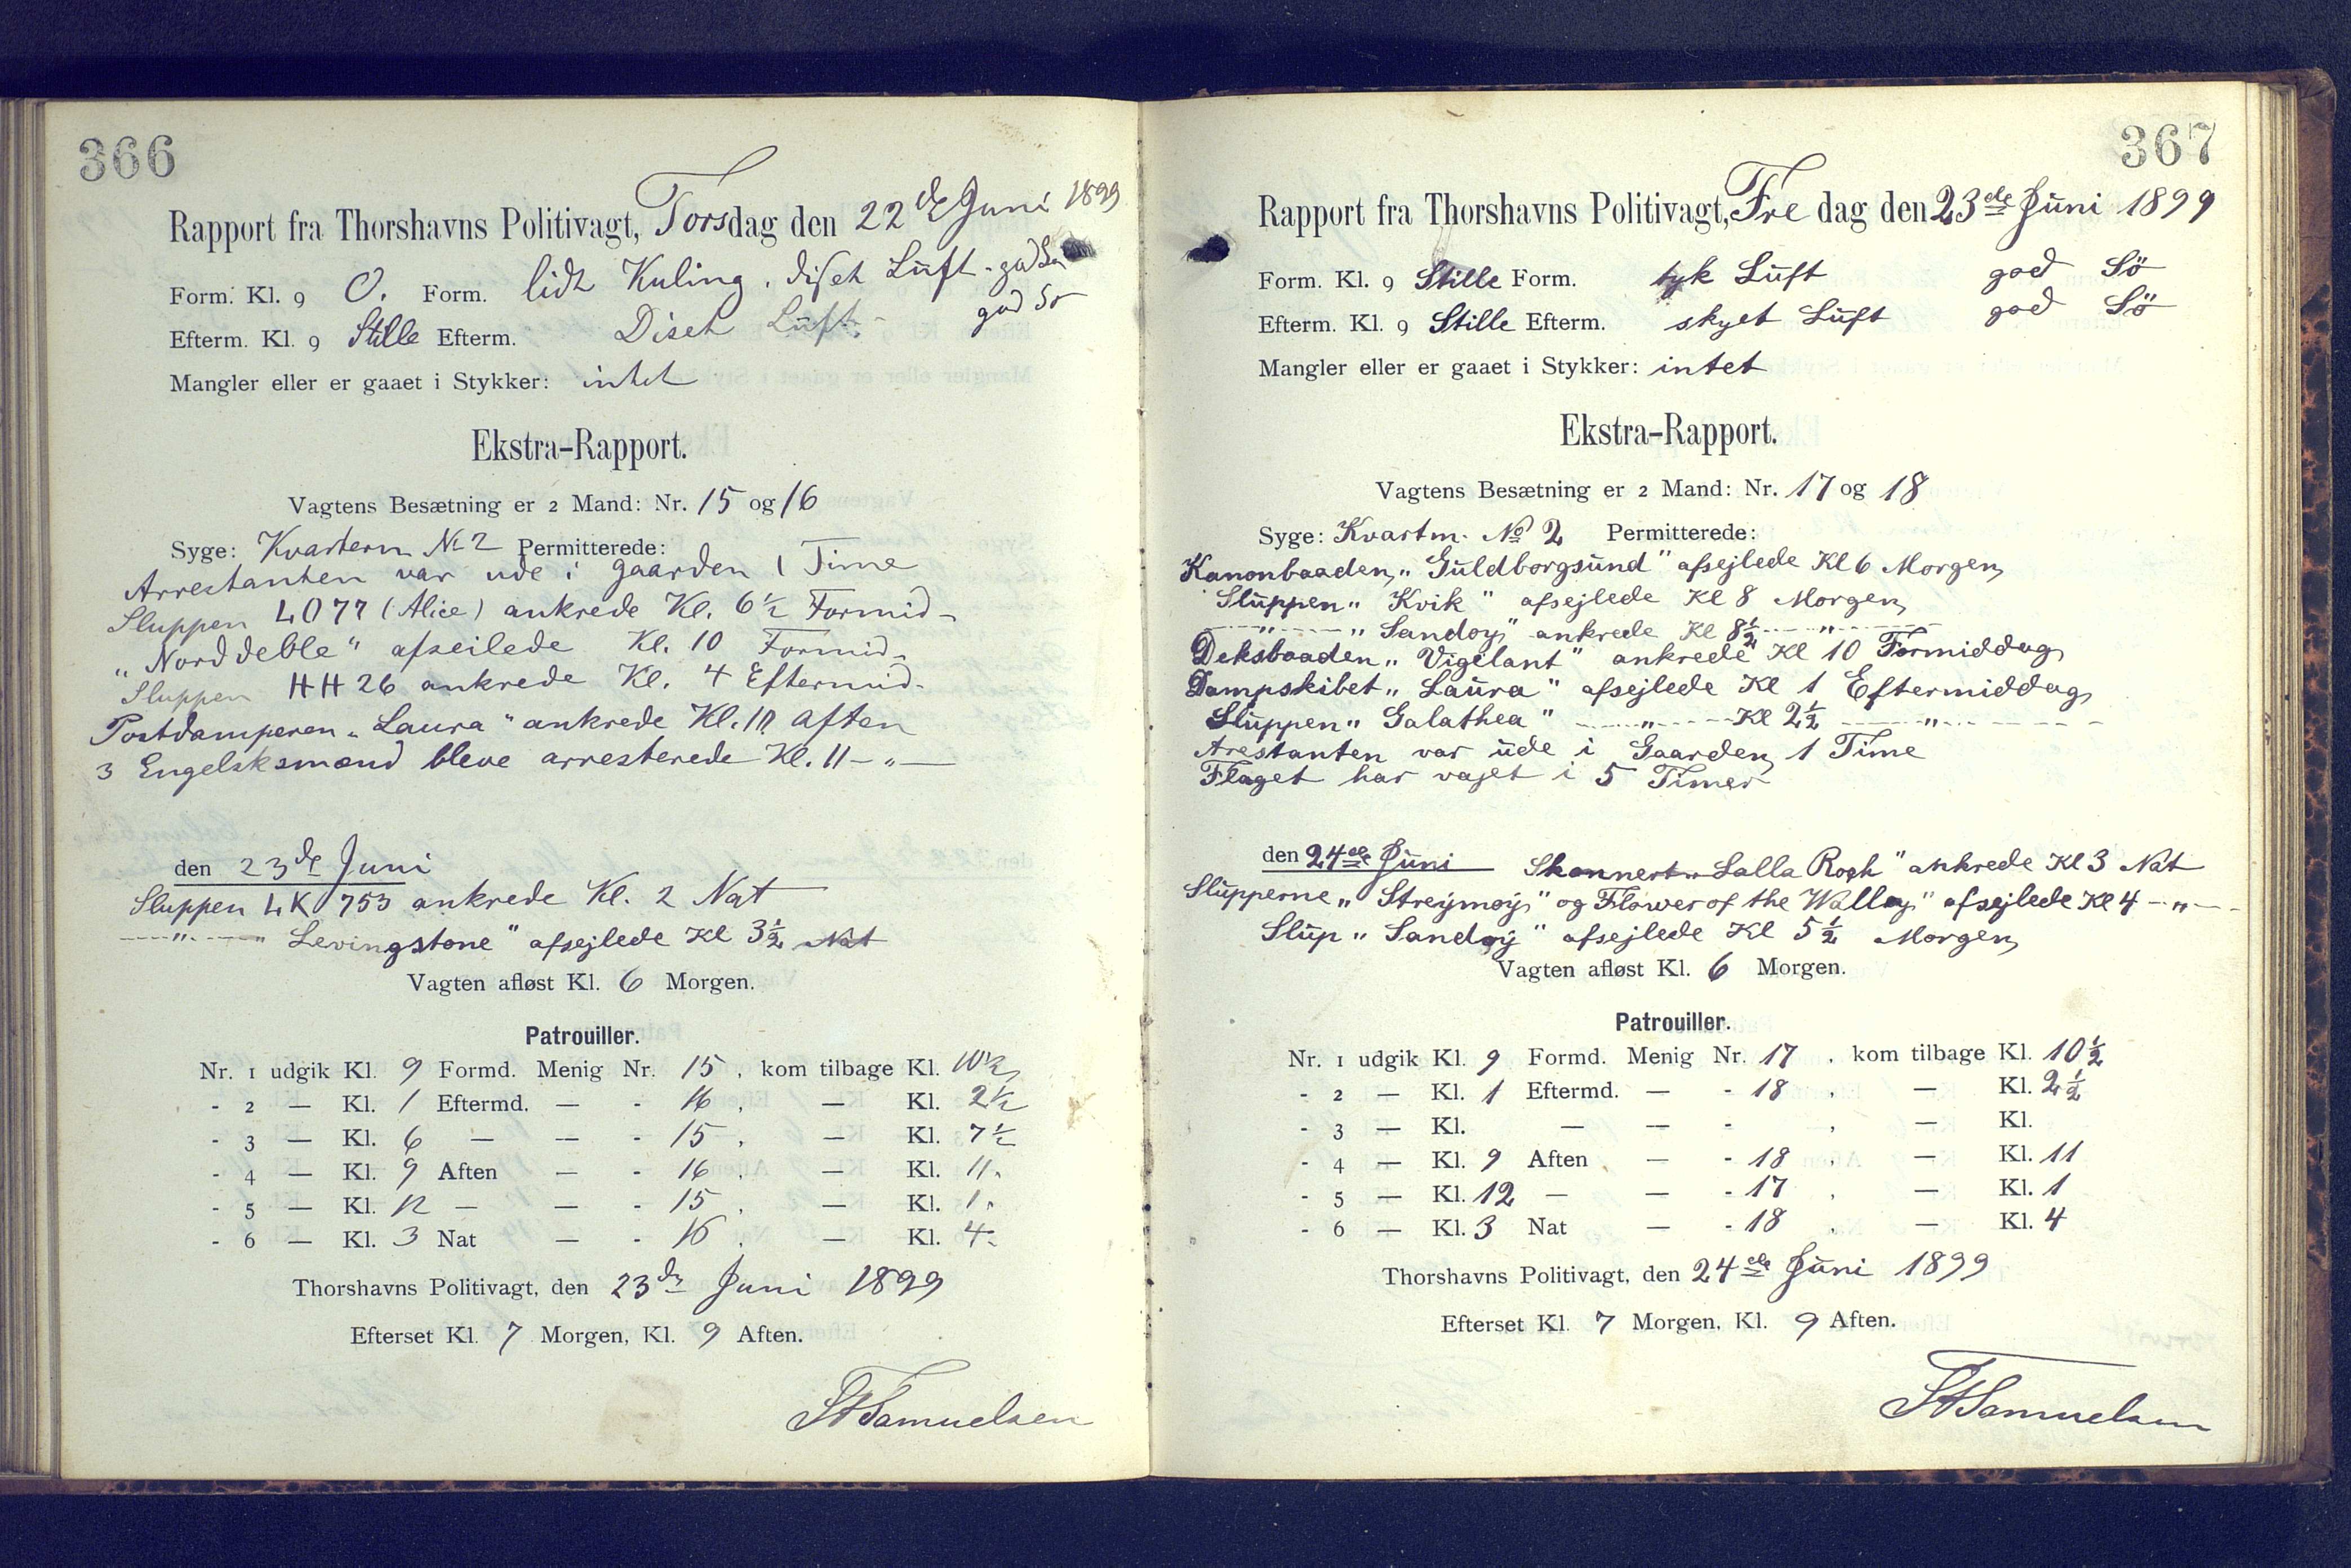 366
Rapport fra Thorshavns Politivagt, Torsdag den 22de Juni 1899
Form. Kl. 9 O. Form. lidt Kuling. diset Luft - god Sø
Efterm. Kl. 9 Stille Efterm. Diset Luft - god Sø
Mangler eller er gaaet i Stykker: intet
Ekstra-Rapport.
Vagtens Besætning er 2 Mand: Nr. 15 og 16
Syge: Kvarterm № 2 Permitterede:
Arrestanten var ude i gaarden 1 Time
Sluppen L077 (Alice) ankrede Kl. 6½ Formid-
" Norddeble" afseilede Kl. 10 Formid-
Sluppen HH 26 ankrede Kl. 4 Eftermid-
Postdamperen „Laura" ankrede Kl. 10 aften
3 Engelskmænd bleve arresterede Kl. 11 — " —
den 23de Juni
Sluppen LK 753 ankrede Kl. 2 Nat
— " — " Levingstone" afsejlede Kl 3½ Nat
Vagten afløst Kl. 6 Morgen.
Patrouiller.
Nr. 1 udgik Kl. 9 Formd. Menig Nr. 15, kom tilbage Kl. 10½
- 2 — Kl. 1 Eftermd. — - 16, — Kl. 2½
- 3 — Kl. 6 — — - 15, — Kl. 7½
- 4 — Kl. 9 Aften — - 16, — Kl. 11.
- 5 — Kl. 12 — — - 15, — Kl. 1.
- 6 — Kl. 3 Nat — - 16, — Kl. 4.
Thorshavns Politivagt, den 23de Juni 1899
Efterset Kl. 7 Morgen, Kl. 9 Aften.
Samuelsen
367
Rapport fra Thorshavns Politivagt, Fredag den 23de Juni 1899
Form. Kl. 9 Stille Form. tyk Luft god Sö
Efterm. Kl. 9 Stille Efterm. skyet Luft god Sö
Mangler eller er gaaet i Stykker: intet
Ekstra-Rapport.
Vagtens Besætning er 2 Mand: Nr. 17 og 18
Syge: Kvartm. № 2 Permitterede:
Kanonbaaden „Guldborgsund" afsejlede Kl 6 Morgen
Sluppen „Kvik" afsejlede Kl 8 Morgen
— " — „Sandoy" ankrede Kl 8½ — " —
Deksbaaden „Vigelant" ankrede Kl 10 Formiddag
Dampskibet „Laura" afsejlede Kl 1 Eftermiddag
Sluppen „Galathea" — " — Kl 2½ — " —
Arestanten var ude i Gaarden 1 Time
Flaget har vajet i 5 Timer
den 24de Juni Skonnert „Lalla Rogh" ankrede Kl 3 Nat
Slupperne „Streymoy" og Flower of the Walley" afsejlede Kl 4 — " —
Slup „Sandoy" afsejlede Kl 5½ Morgen
Vagten afløst Kl. 6 Morgen.
Patrouiller.
Nr. 1 udgik Kl. 9 Formd. Menig Nr. 17, kom tilbage Kl. 10½
- 2 — Kl. 1 Eftermd. — - 18, — Kl. 2½
- 3 — Kl. — — - , — Kl.
- 4 — Kl. 9 Aften — - 18, — Kl. 11
- 5 — Kl. 12 — — - 17, — Kl. 1
- 6 — Kl. 3 Nat — - 18, — Kl. 4
Thorshavns Politivagt, den 24de Juni 1899
Efterset Kl. 7 Morgen, Kl. 9 Aften.
Samuelsen